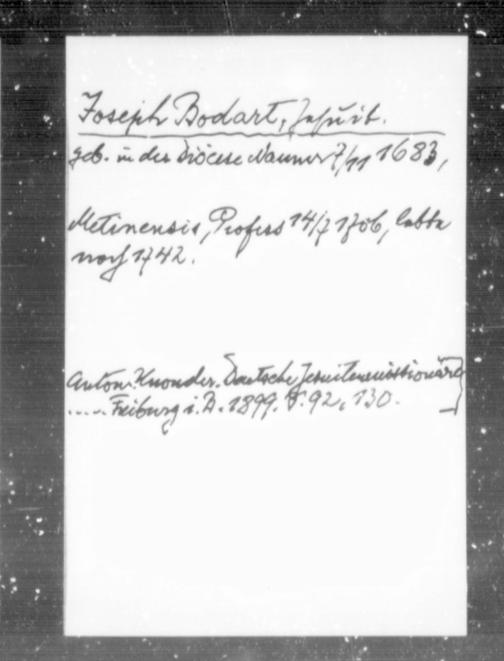 Joseph Bodart, Jesuit.
geb. in der Diöcese Namur 7/11 1683,
Metinensis, Profess 14/7 1706, lebte
noch 1742.
Anton Huonder. Deutsche Jesuitenmissionäre
..... Freiburg i. B. 1899. S. 92, 130.